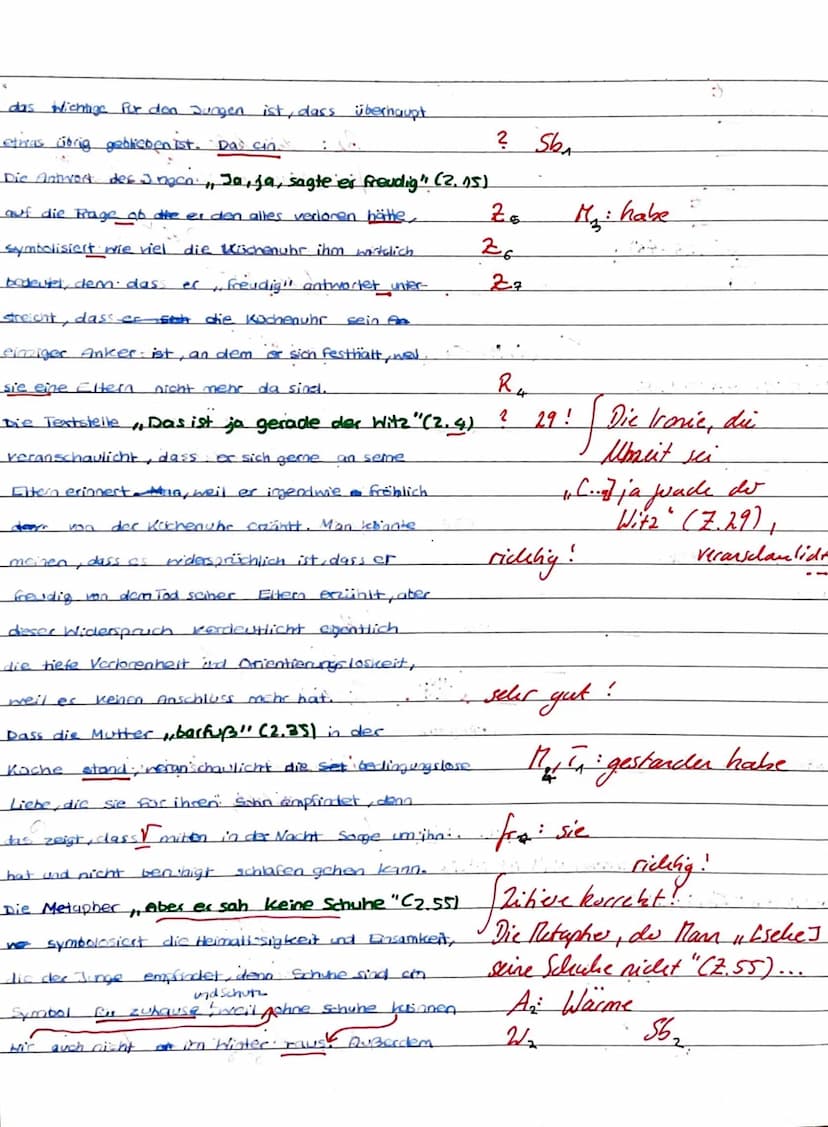 das Wichtige für den Jungen ist, dass überhaupt
etwas übrig geblieben ist. Das ein ? Sb1
Die Antwort des Jungen „Ja, ja, sagte er freudig" (Z. 15)
auf die Frage ob die er den alles verloren hätte, Z5 M3: habe
symbolisiert wie viel die Küchenuhr ihm wirklich Z6
bedeutet, denn das er „freudig" antwortet unter- Z7
streicht, dass die Küchenuhr sein
einziger Anker ist, an dem er sich festhält, weil
sie eine Eltern nicht mehr da sind. R4
Die Textstelle „Das ist ja gerade der Witz" (Z. 4) ? 29! Die Ironie, die
veranschaulicht, dass er sich gerne an seine Uhrzeit sei
Eltern erinnert, weil er irgendwie fröhlich „[...] ja gerade der
von der Küchenuhr erzählt. Man könnte Witz" (Z. 29),
meinen, dass es widersprüchlich ist, dass er richtig! veranschaulicht
freudig von dem Tod seiner Eltern erzählt, aber
dieser Widerspruch verdeutlicht eigentlich
die tiefe Verlorenheit und Orientierungslosigkeit,
weil er keinen Anschluss mehr hat. sehr gut!
Dass die Mutter „barfuß" (Z. 35) in der
Küche stand, veranschaulicht die bedingungslose M4, T1: gestanden habe
Liebe, die sie für ihren Sohn empfindet, denn
das zeigt, dass √ mitten in der Nacht Sorge um ihn : sie
hat und nicht beruhigt schlafen gehen kann. richtig!
Die Metapher „Aber er sah keine Schuhe" (Z. 55) Zitiere korrekt!
symbolosiert die Heimatlosigkeit und Einsamkeit, Die Metapher, der Mann „[sehe]
die der Junge empfindet, denn Schuhe sind ein seine Schuhe nicht" (Z. 55)...
und Schutz
Symbol für zuhause, weil ohne Schuhe können A2: Wärme
wir auch nicht im Winter raus. Außerdem W2 Sb2